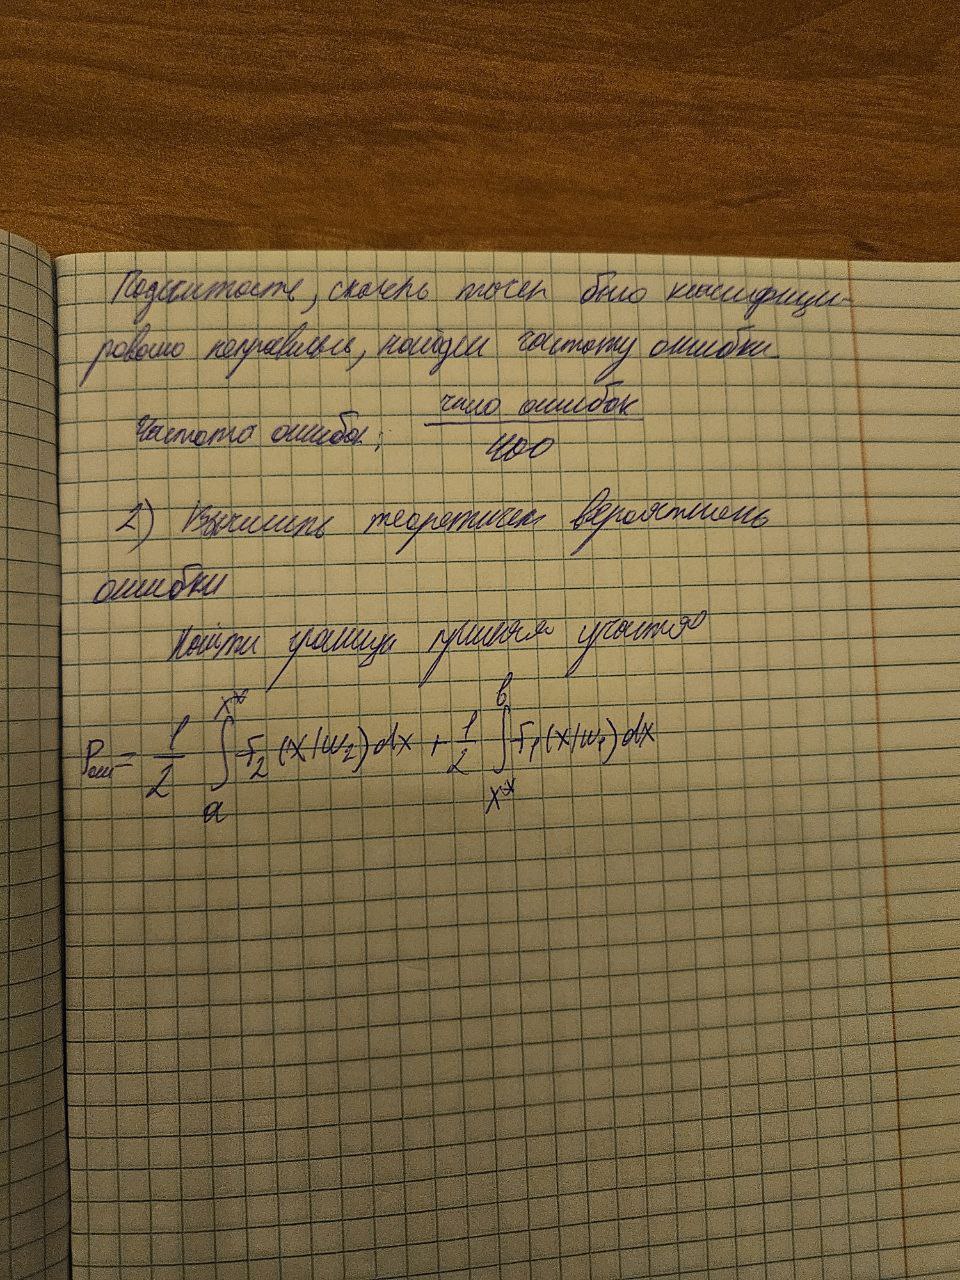 Подсчитать, сколь точек было классифици-
ровано неправильн, найдем частоту ошибки
Частота ошибок: число ошибок / 400
2) Вычислить теоретичес вероятность
ошибки
Найти границу участка
Pош = 1/2 ∫_a^{x*} f₂(x/w₂)dx + 1/2 ∫_{x*}^b f₁(x/w₁)dx